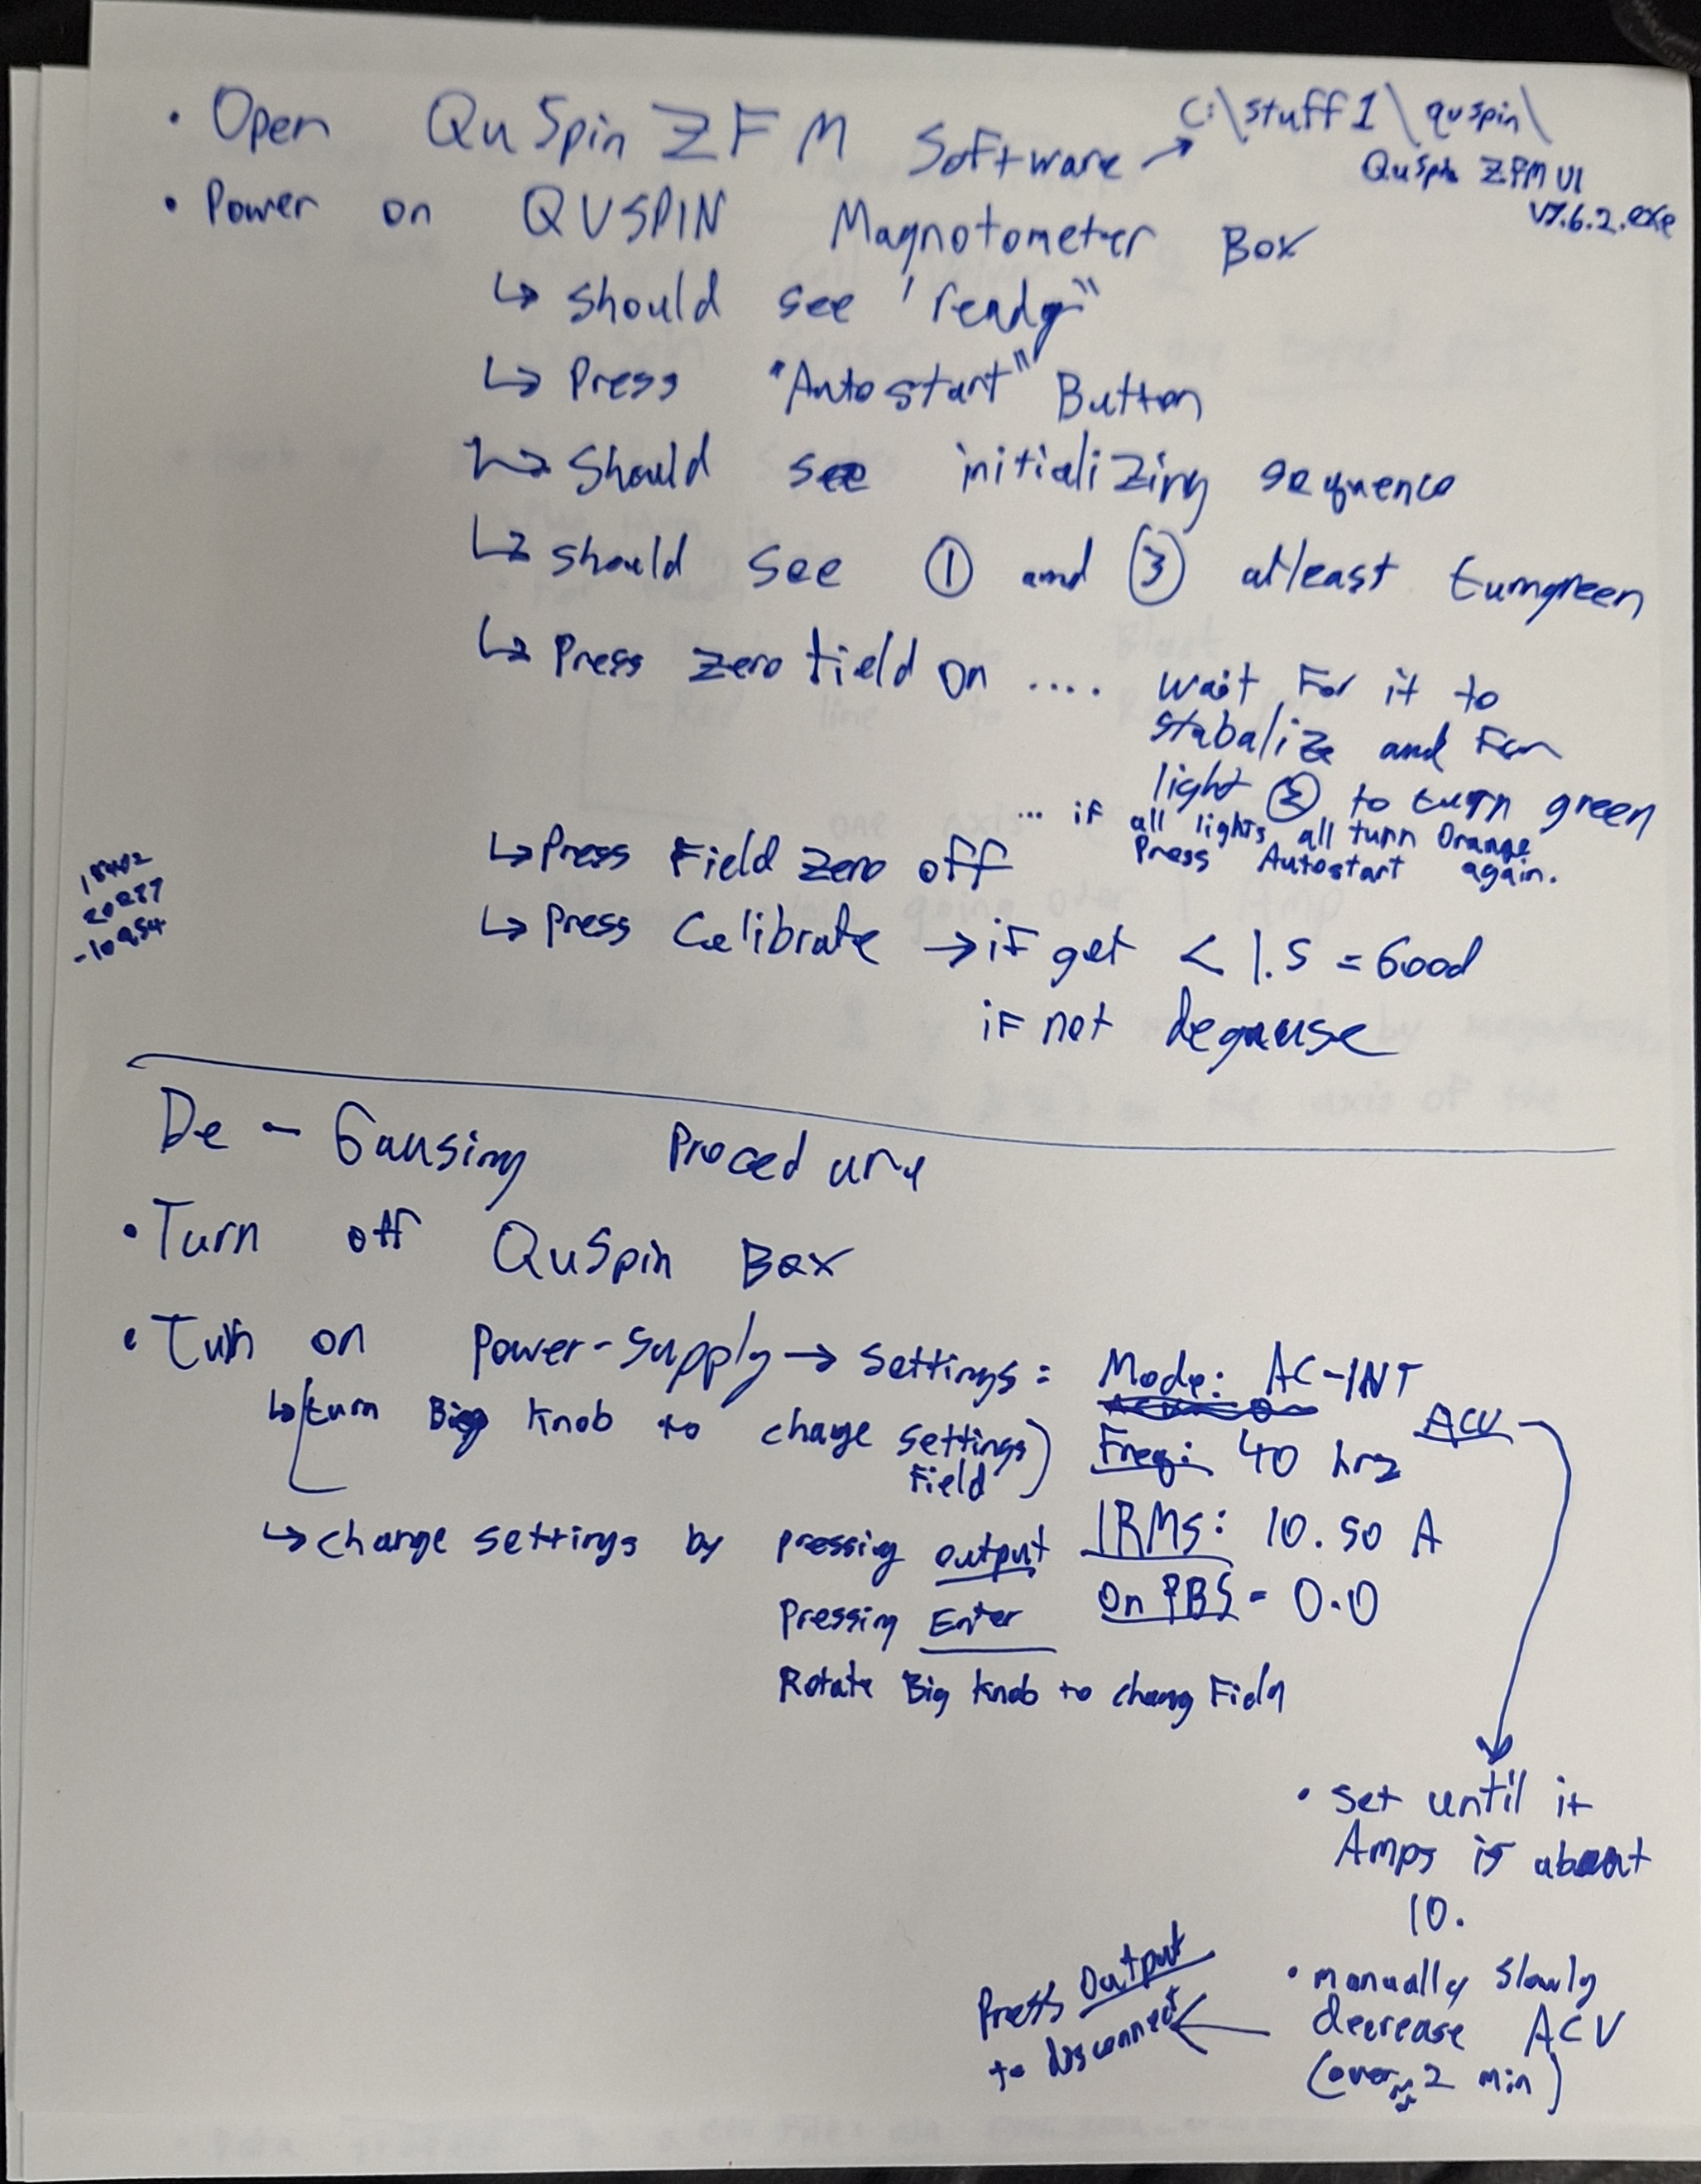 • Open QuSpin ZFM Software → C:\stuff1\quspin\
QuSpin ZFM UI
V7.6.2.exe
• Power on QUSPIN Magnotometer Box
↳ Should see "ready"
↳ Press "Autostart" Button
↳ Should see initializing sequence
↳ should see ① and ③ atleast turngreen
↳ Press Zero field on .... wait For it to
stabalize and For
light ② to turn green
... if all lights all turn Orange
Press Autostart again.
↳ Press Field Zero off
↳ Press Calibrate → if get < 1.5 = Good
if not degause
-10954
De - Gausing Procedure
• Turn off QuSpin Box
• Turn on Power-Supply → Settings: Mode: AC-INT
↳ turn Big Knob to change settings Field) Freq: 40 hrz
ACV
IRMS: 10.50 A
↳ change settings by pressing output
On PBS = 0.0
Pressing Enter
Rotate Big Knob to chang Field
• Set until it
Amps is about
10.
• manually slowly
decrease ACV
(over ≈ 2 min)
Press Output
to disconnect